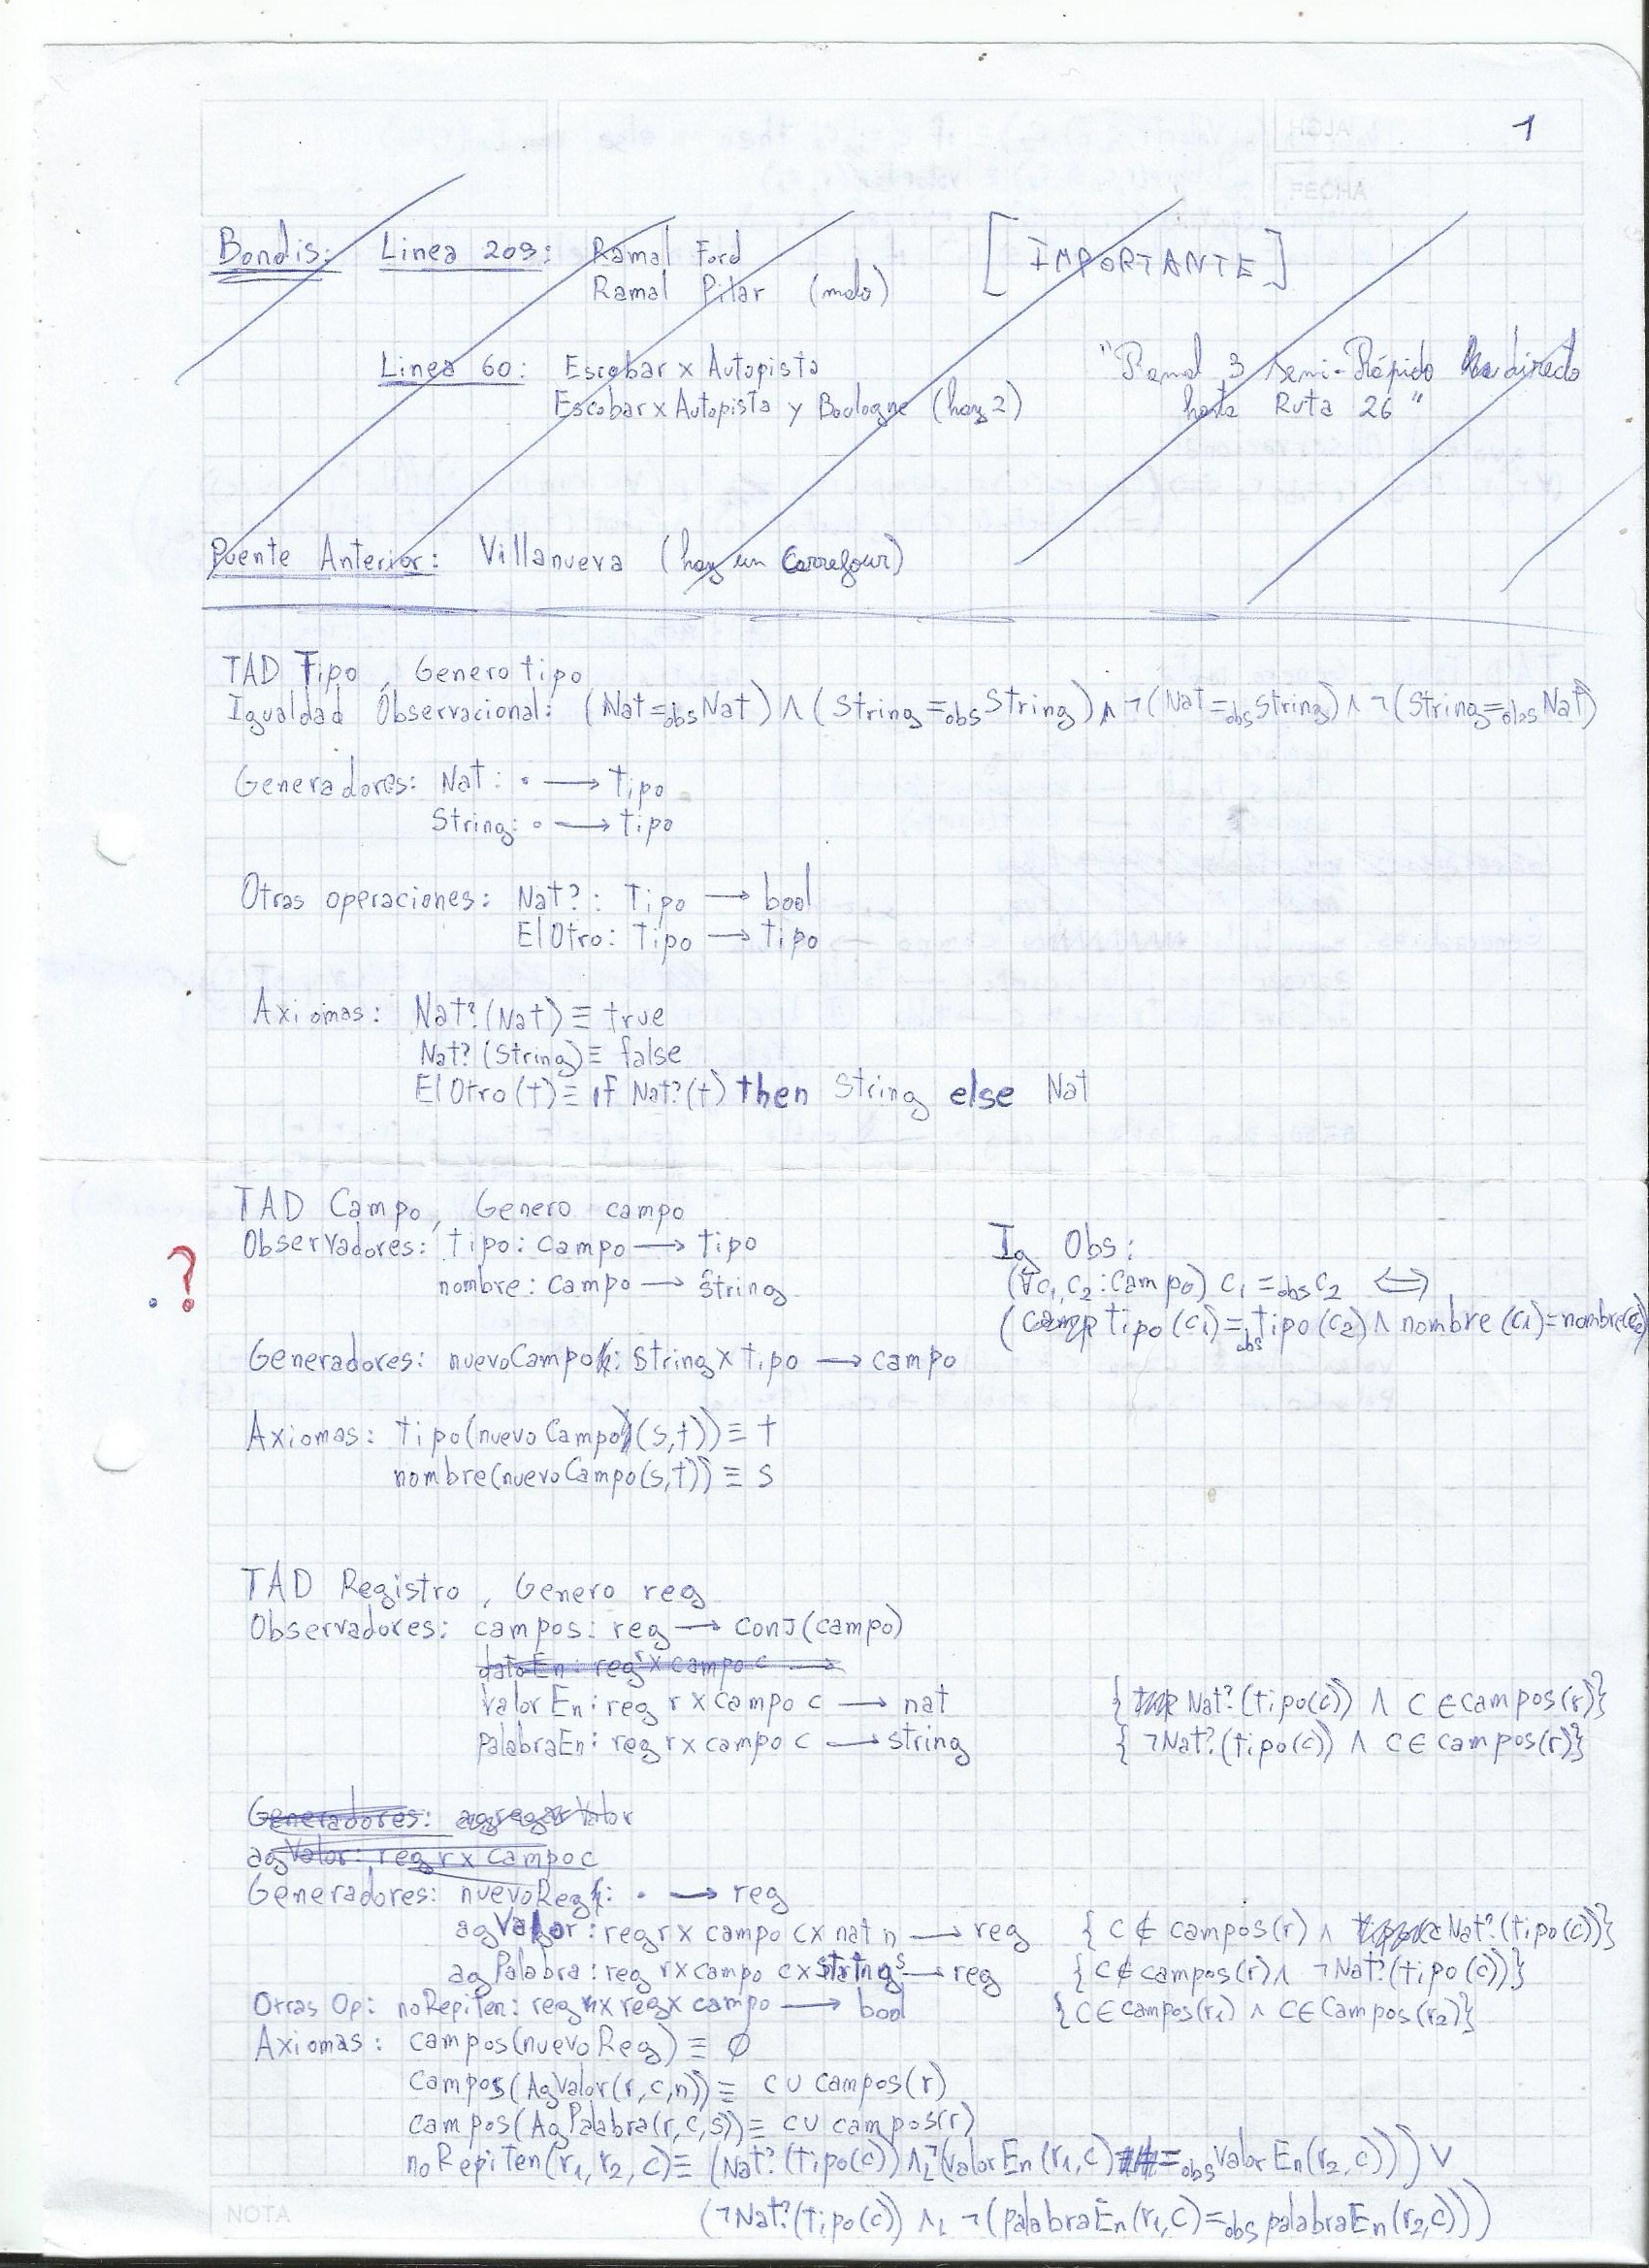 1
Bondis: Linea 203: Ramal Ford [IMPORTANTE]
Ramal Pilar (malo)
Linea 60: Escobar x Autopista "Ramal 3 Semi-Rápido directo
Escobar x Autopista y Boulogne (hay 2) hasta Ruta 26"
Puente Anterior: Villanueva (hay un Carrefour)
TAD Tipo, Genero tipo
Igualdad Observacional: (Nat =obs Nat) ∧ (String =obs String) ∧ ¬(Nat =obs String) ∧ ¬(String =obs Nat)
Generadores: Nat: • ⟶ tipo
String: • ⟶ tipo
Otras operaciones: Nat?: Tipo ⟶ bool
ElOtro: Tipo ⟶ tipo
Axiomas: Nat?(Nat) ≡ true
Nat?(String) ≡ false
ElOtro(t) ≡ if Nat?(t) then String else Nat
TAD Campo, Genero campo
Observadores: tipo: campo ⟶ tipo Ig Obs:
¿? nombre: campo ⟶ String (∀c1, c2: Campo) c1 =obs c2 ⟺
(tipo(c1) =obs tipo(c2) ∧ nombre(c1) = nombre(c2)
Generadores: nuevoCampo: String x tipo ⟶ campo
Axiomas: tipo(nuevoCampo(s,t)) ≡ t
nombre(nuevoCampo(s,t)) ≡ s
TAD Registro, Genero reg
Observadores: campos: reg ⟶ conj(campo)
datoEn: reg r x campo c ⟶
valorEn: reg r x campo c ⟶ nat { Nat?(tipo(c)) ∧ c ∈ campos(r)}
palabraEn: reg r x campo c ⟶ string { ¬Nat?(tipo(c)) ∧ c ∈ campos(r)}
Generadores: agregarValor
agValor: reg r x campo c
Generadores: nuevoReg: • ⟶ reg
agValor: reg r x campo c x nat n ⟶ reg { c ∉ campos(r) ∧ Nat?(tipo(c))}
agPalabra: reg r x campo c x string s ⟶ reg { c ∉ campos(r) ∧ ¬Nat?(tipo(c))}
Otras Op: noRepiten: reg x reg x campo ⟶ bool {c ∈ campos(r1) ∧ c ∈ Campos(r2)}
Axiomas: campos(nuevoReg) ≡ ∅
campos(AgValor(r,c,n)) ≡ c ∪ campos(r)
campos(AgPalabra(r,c,s)) ≡ c ∪ campos(r)
noRepiten(r1, r2, c) ≡ (Nat?(tipo(c)) ∧L ¬(valorEn(r1,c) =obs valorEn(r2,c))) ∨
NOTA (¬Nat?(tipo(c)) ∧L ¬(palabraEn(r1,c) =obs palabraEn(r2,c)))